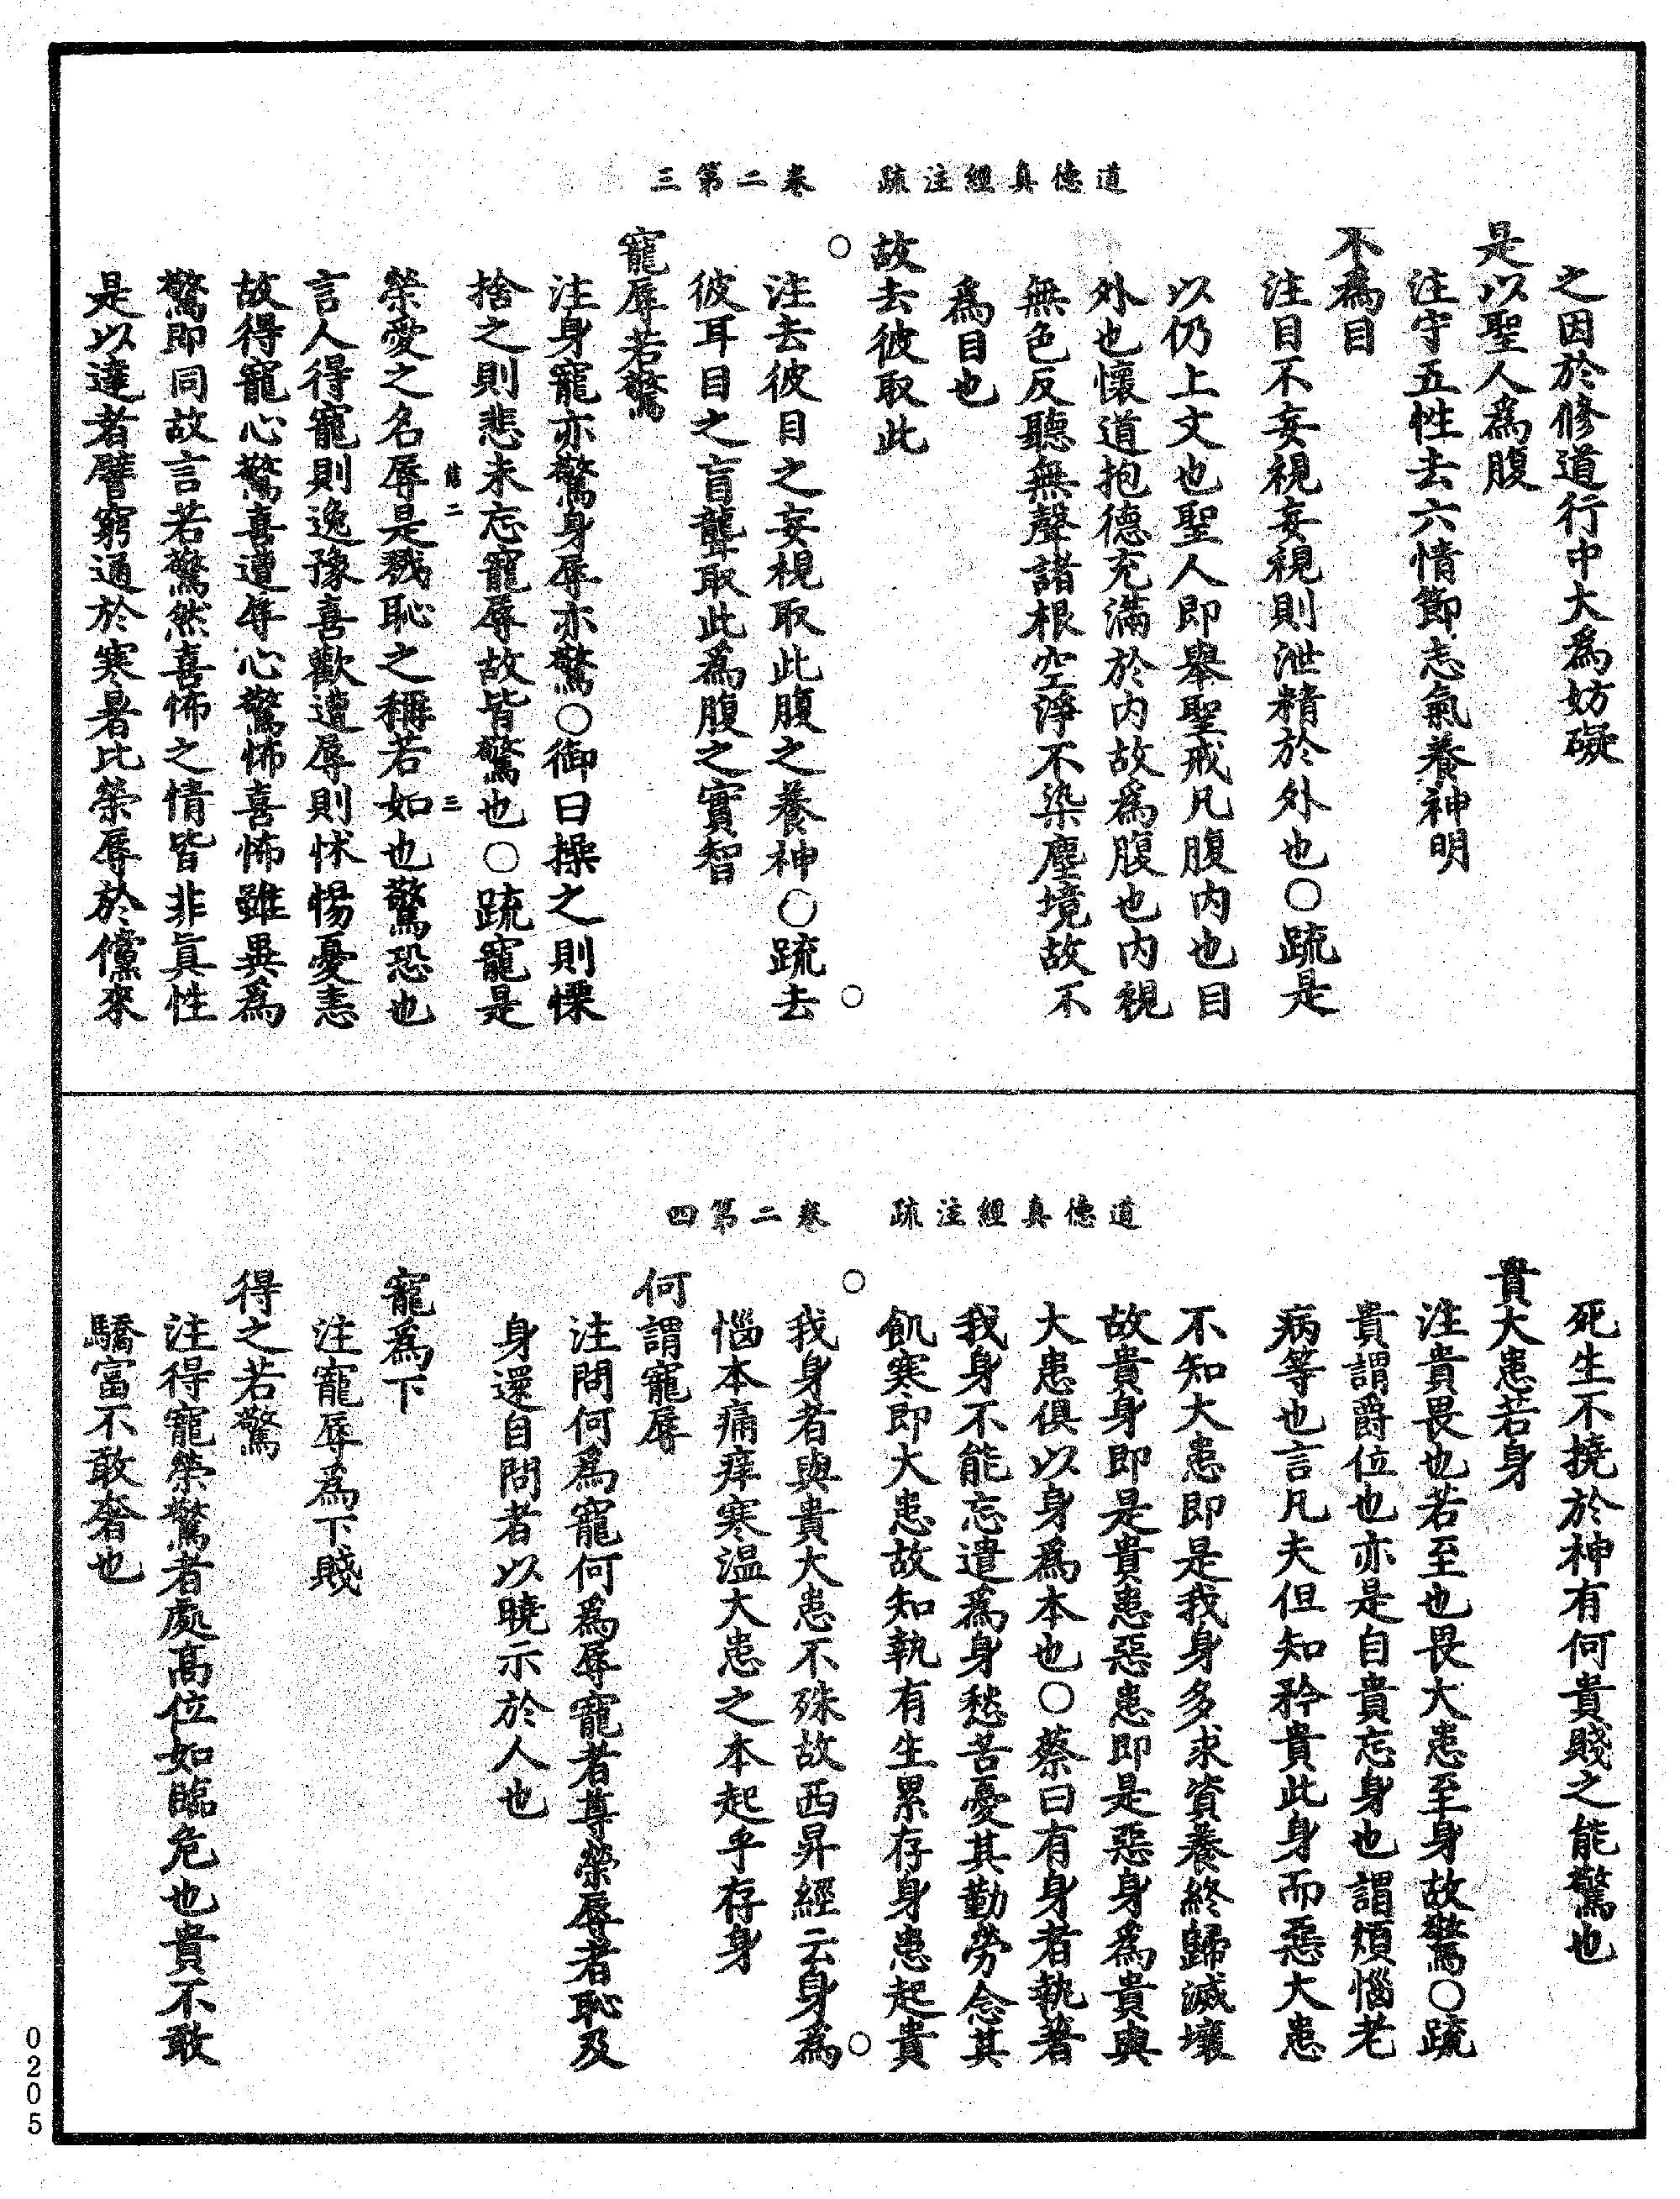 道德真經注疏　卷二第三
之因於修道行中大為妨礙
是以聖人為腹
注守五性去六情節志氣養神明
不為目
注目不妄視妄視則泄精於外也○疏是
以仍上文也聖人即舉聖戒凡腹內也目
外也懷道抱德充滿於內故為腹也內視
無色反聽無聲諸根空淨不染塵境故不
為目也
故去彼取此
○
○
注去彼目之妄視取此腹之養神○疏去
彼耳目之盲聾取此為腹之實智
寵辱若驚
注身寵亦驚身辱亦驚○御曰操之則慄
捨之則悲未忘寵辱故皆驚也○疏寵是
二　三
榮愛之名辱是戮恥之稱若如也驚恐也
言人得寵則逸豫喜歡遭辱則怵惕憂恚
故得寵心驚喜遭辱心驚怖喜怖雖異為
驚即同故言若驚然喜怖之情皆非真性
是以達者譬窮通於寒暑比榮辱於儻來
道德真經注疏　卷二第四
死生不撓於神有何貴賤之能驚也
貴大患若身
注貴畏也若至也畏大患至身故驚○疏
貴謂爵位也亦是自貴忘身也謂煩惱老
病等也言凡夫但知矜貴此身而惡大患
不知大患即是我身多求資養終歸滅壞
故貴身即是貴患惡患即是惡身為貴與
大患俱以身為本也○蔡曰有身者執著
我身不能忘遣為身愁苦憂其勤勞念其
飢寒即大患故知執有生累存身患起貴
○
○
我身者與貴大患不殊故西昇經云身為
惱本痛痒寒溫大患之本起乎存身
何謂寵辱
注問何為寵何為辱寵者尊榮辱者恥及
身還自問者以曉示於人也
寵為下
注寵辱為下賤
得之若驚
注得寵榮驚者處高位如臨危也貴不敢
驕富不敢奢也
0205